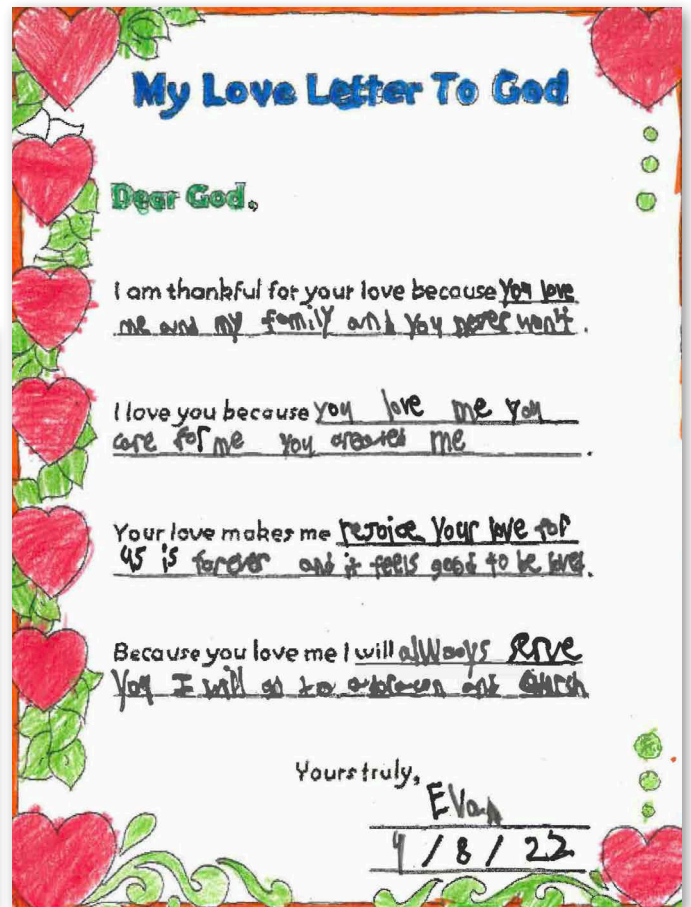 My Love Letter To God
Dear God,
I am thankful for your love because you love
me and my family and you never won't.
I love you because you love me you
care for me you created me.
Your love makes me rejoice your love for
us is forever and it feels good to be loved.
Because you love me I will always serve
you I will go to and church
Yours truly,
Evan
4/8/22